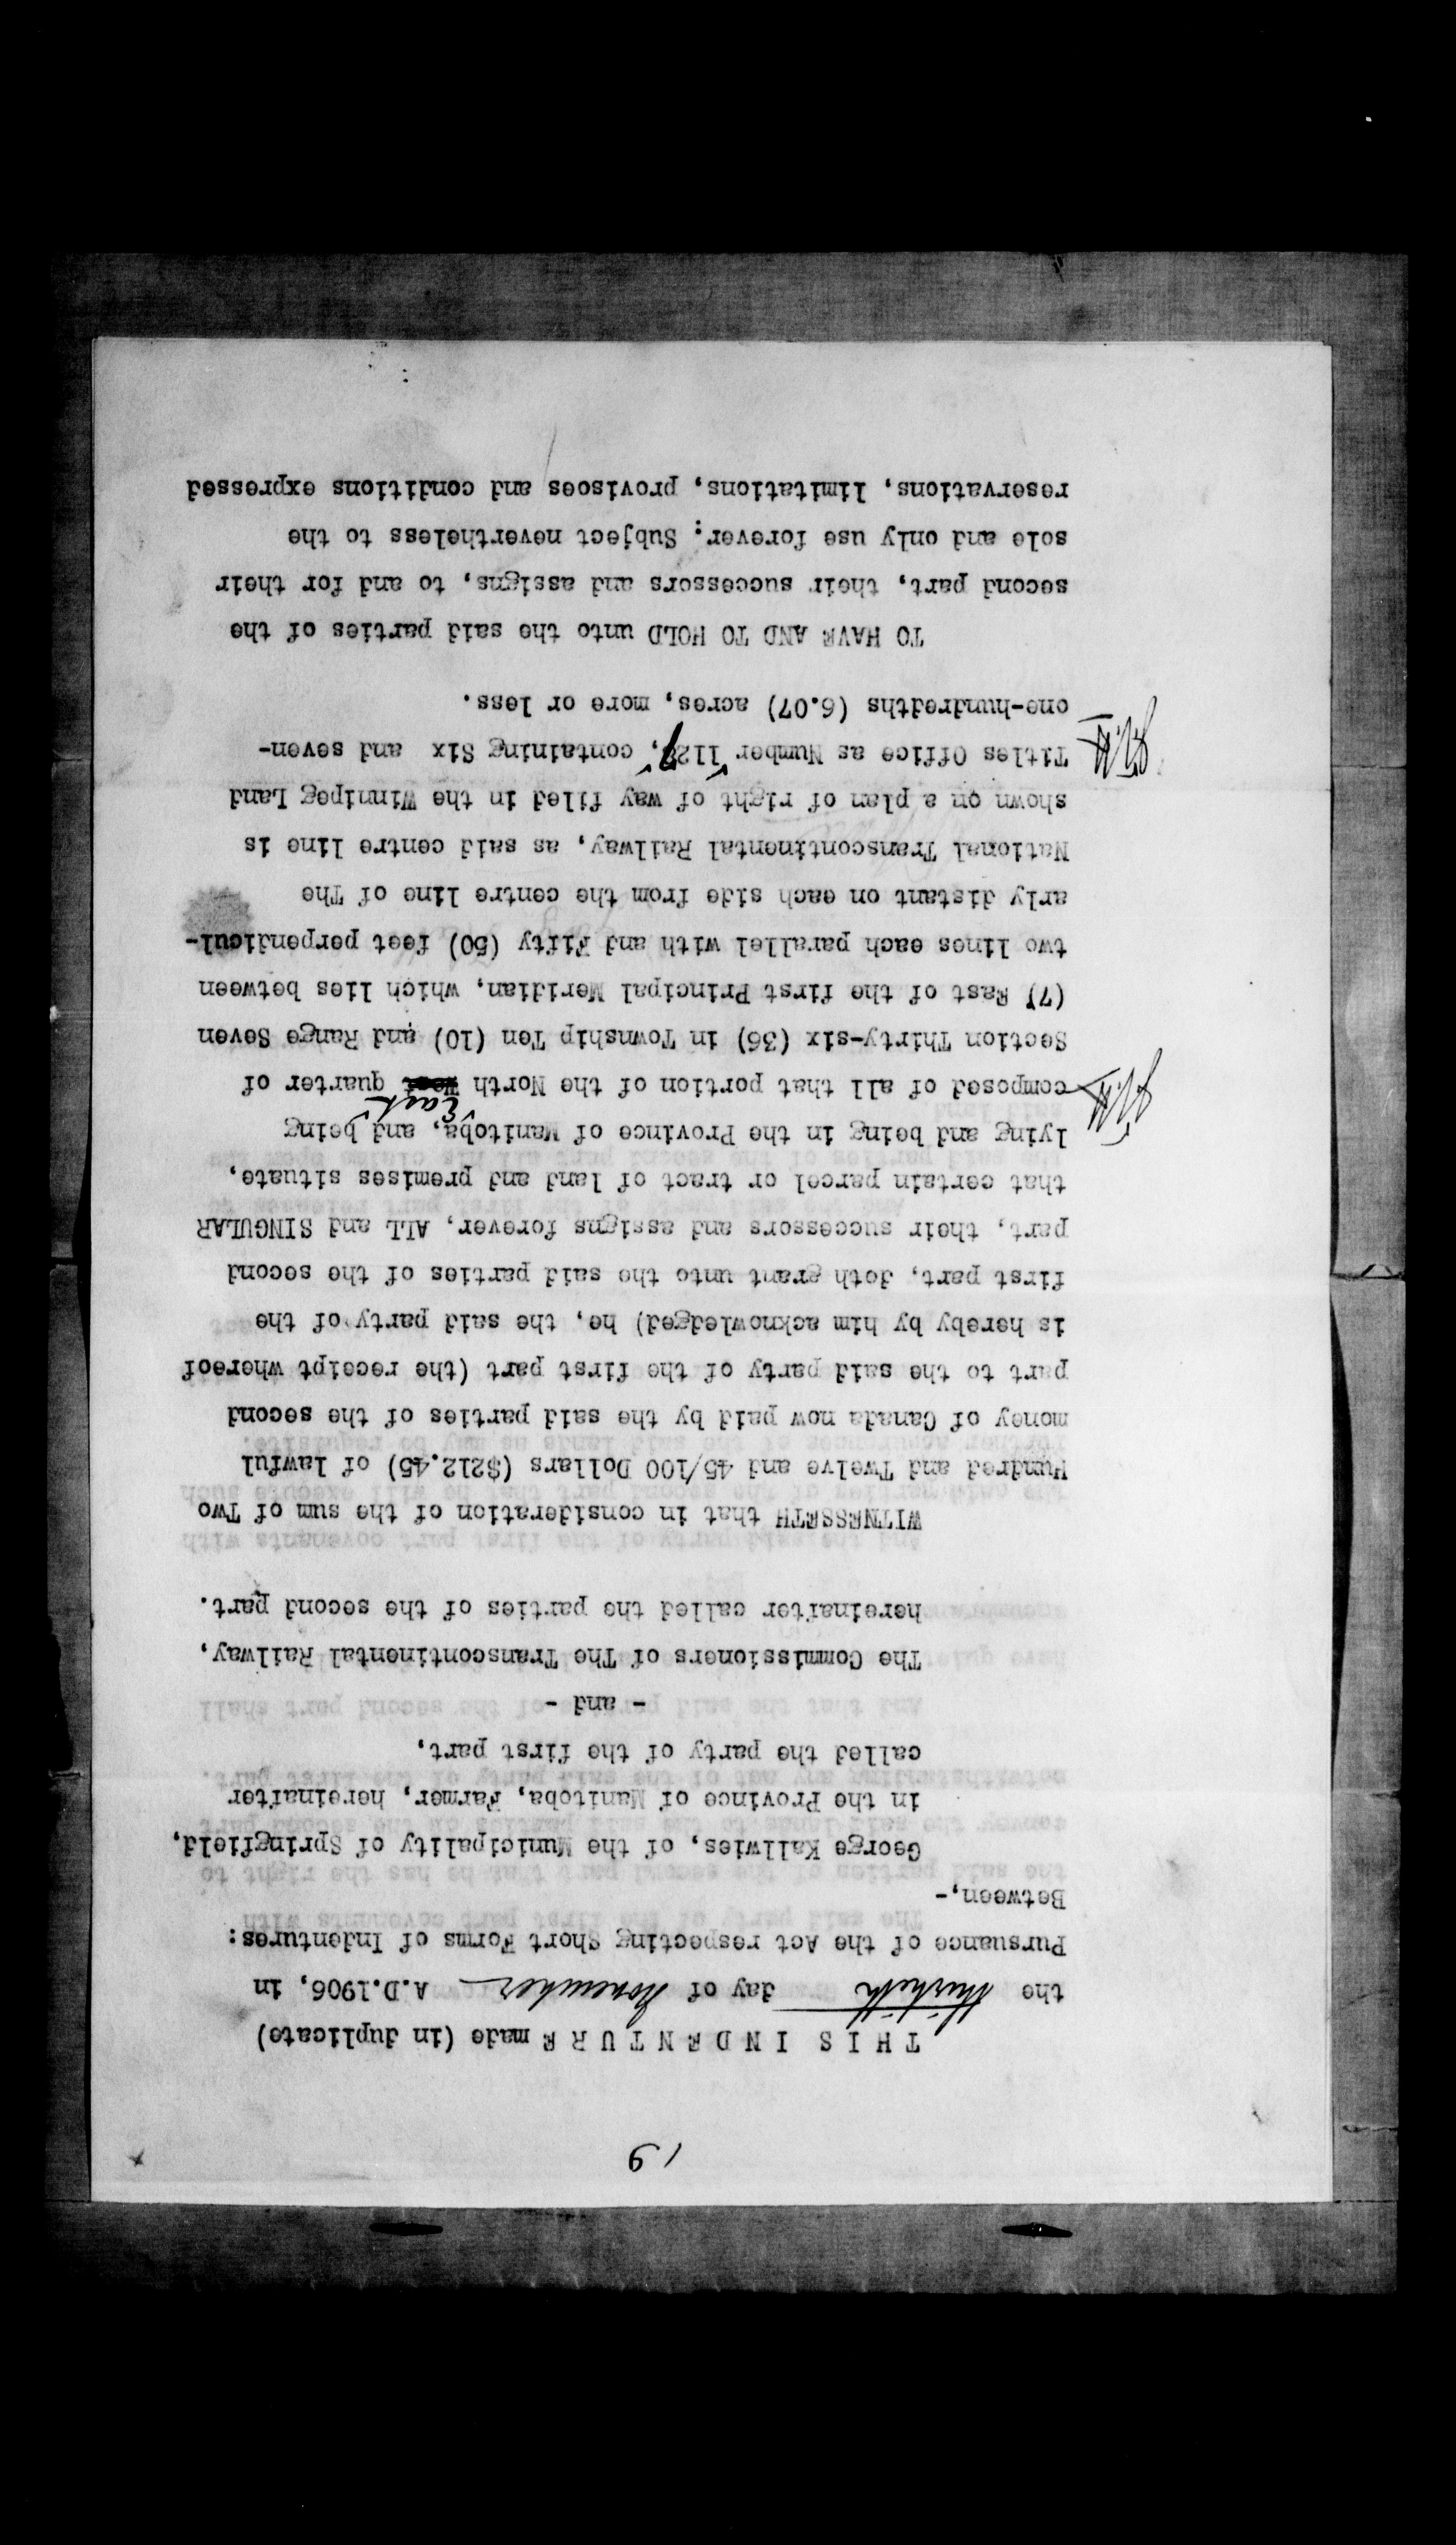 19
THIS INDENTURE made (in duplicate)
the thirtieth day of November A.D.1906, in
Pursuance of the Act respecting Short Forms of Indentures:
Between,-
George Kallwies, of the Municipality of Springfield,
in the Province of Manitoba, Farmer, hereinafter
called the party of the first part,
- and -
The Commissioners of The Transcontinental Railway,
hereinafter called the parties of the second part.
WITNESSETH that in consideration of the sum of Two
Hundred and Twelve and 45/100 Dollars ($212.45) of lawful
money of Canada now paid by the said parties of the second
part to the said party of the first part (the receipt whereof
is hereby by him acknowledged) he, the said party of the
first part, doth grant unto the said parties of the second
part, their successors and assigns forever, ALL and SINGULAR
that certain parcel or tract of land and premises situate,
lying and being in the Province of Manitoba, and being
East
composed of all that portion of the North quarter of
Section Thirty-six (36) in Township Ten (10) and Range Seven
(7) East of the first Principal Meridian, which lies between
two lines each parallel with and Fifty (50) feet perpendicul-
arly distant on each side from the centre line of The
National Transcontinental Railway, as said centre line is
shown on a plan of right of way filed in the Winnipeg Land
Titles Office as Number containing Six and seven-
one-hundredths (6.07) acres, more or less.
TO HAVE AND TO HOLD unto the said parties of the
second part, their successors and assigns, to and for their
sole and only use forever; Subject nevertheless to the
reservations, limitations, provisoes and conditions expressed